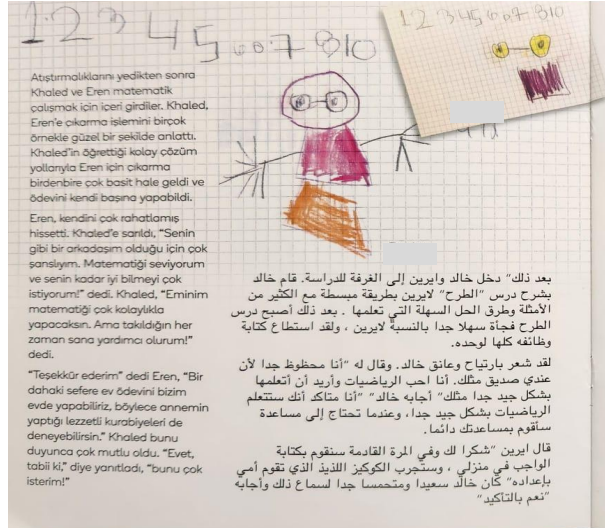 1 2 3 4 5 6 7 8 10
1 2 3 4 5 6 7 8 10
Atıştırmalıklarını yedikten sonra
Khaled ve Eren matematik
çalışmak için içeri girdiler. Khaled,
Eren'e çıkarma işlemini birçok
örnekle güzel bir şekilde anlattı.
Khaled'in öğrettiği kolay çözüm
yollarıyla Eren için çıkarma
birdenbire çok basit hale geldi ve
ödevini kendi başına yapabildi.
Eren, kendini çok rahatlamış
hissetti. Khaled'e sarıldı, "Senin
gibi bir arkadaşım olduğu için çok
şanslıyım. Matematiği seviyorum
ve senin kadar iyi bilmeyi çok
istiyorum!" dedi. Khaled, "Eminim
matematiği çok kolaylıkla
yapacaksın. Ama takıldığın her
zaman sana yardımcı olurum!"
dedi.
"Teşekkür ederim" dedi Eren, "Bir
dahaki sefere ev ödevini bizim
evde yapabiliriz, böylece annemin
yaptığı lezzetli kurabiyeleri de
deneyebilirsin." Khaled bunu
duyunca çok mutlu oldu. "Evet,
tabii ki," diye yanıtladı, "bunu çok
isterim!"
بعد ذلك" دخل خالد وايرين إلى الغرفة للدراسة. قام خالد
بشرح درس "الطرح" لايرين بطريقة مبسطة مع الكثير من
الأمثلة وطرق الحل السهلة التي تعلمها . بعد ذلك أصبح درس
الطرح فجأة سهلا جدا بالنسبة لايرين ، ولقد استطاع كتابة
وظائفه كلها لوحده.
لقد شعر بارتياح وعانق خالد. وقال له "أنا محظوظ جدا لأن
عندي صديق مثلك. أنا احب الرياضيات وأريد أن أتعلمها
بشكل جيد جدا مثلك" أجابه خالد" "أنا متاكد أنك ستتعلم
الرياضيات بشكل جيد جدا، وعندما تحتاج إلى مساعدة
سأقوم بمساعدتك دائما.
قال ايرين "شكرا لك وفي المرة القادمة سنقوم بكتابة
الواجب في منزلي ، وستجرب الكوكيز اللذيذ الذي تقوم أمي
بإعداده" كان خالد سعيدا ومتحمسا جدا لسماع ذلك وأجابه
"نعم بالتأكيد"